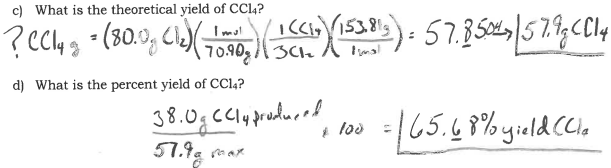 c) What is the theoretical yield of CCl₄?
? CCl₄ g = (80.0g Cl₂)(1 mol / 70.90g)(1 CCl₄ / 3Cl₂)(153.81g / 1 mol) = 57.8504 → 57.9g CCl₄
d) What is the percent yield of CCl₄?
38.0g CCl₄ produced
57.9g max
* 100 = 65.68% yield CCl₄